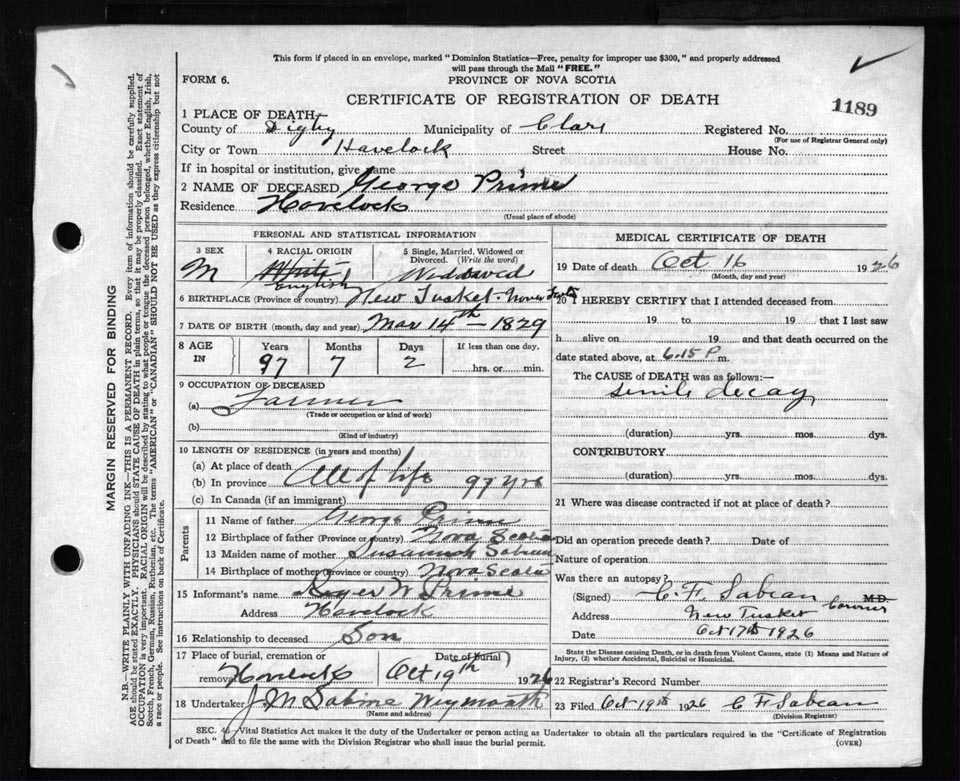 This form if placed in an envelope, marked "Dominion Statistics—Free, penalty for improper use $300," and properly addressed
will pass through the Mail "FREE."
FORM 6.
PROVINCE OF NOVA SCOTIA
CERTIFICATE OF REGISTRATION OF DEATH
1189
1 PLACE OF DEATH
County of Digby Municipality of Clare Registered No.
(For use of Registrar General only)
City or Town Havelock Street House No.
If in hospital or institution, give name
2 NAME OF DECEASED George Prime
Residence Havelock
(Usual place of abode)
PERSONAL AND STATISTICAL INFORMATION
3 SEX 4 RACIAL ORIGIN 5 Single, Married, Widowed or
Divorced. (Write the word)
M White Widowed
English
6 BIRTHPLACE (Province or country) New Tusket Nova Scotia
7 DATE OF BIRTH (month, day and year) Mar 14th — 1829
8 AGE IN Years Months Days If less than one day,
97 7 2 hrs. or min.
9 OCCUPATION OF DECEASED
(a) Farmer
(Trade or occupation or kind of work)
(b)
(Kind of industry)
10 LENGTH OF RESIDENCE (in years and months)
(a) At place of death
(b) In province All of life 97 yrs
(c) In Canada (if an immigrant)
Parents
11 Name of father George Prime
12 Birthplace of father (Province or country) Nova Scotia
13 Maiden name of mother Susannah Sabean
14 Birthplace of mother (Province or country) Nova Scotia
15 Informant's name Roger W Prime
Address Havelock
16 Relationship to deceased Son
17 Place of burial, cremation or Date of burial
removal Havelock Oct 19th 1926
18 Undertaker J. M Sabine Weymouth
(Name and address)
MEDICAL CERTIFICATE OF DEATH
19 Date of death Oct 16 1926
(Month, day and year)
20 I HEREBY CERTIFY that I attended deceased from
19 to 19 that I last saw
h alive on 19 and that death occurred on
date stated above, at 6.15 P m.
The CAUSE of DEATH was as follows:—
senile decay
(duration) yrs. mos. dys.
CONTRIBUTORY
(duration) yrs. mos. dys.
21 Where was disease contracted if not at place of death?
Did an operation precede death? Date of
Nature of operation
Was there an autopsy?
(Signed) C. F. Sabean M.D.
Coroner
Address New Tusket
Date Oct 17th 1926
State the Disease causing Death, or in death from Violent Causes, state (1) Means and Nature of
Injury, (2) whether Accidental, Suicidal or Homicidal.
22 Registrar's Record Number
23 Filed Oct 19th 1926 C F Sabean
(Division Registrar)
SEC. 46—Vital Statistics Act makes it the duty of the Undertaker or person acting as Undertaker to obtain all the particulars required in the "Certificate of Registration
of Death" and to file the same with the Division Registrar who shall issue the burial permit. (OVER)
MARGIN RESERVED FOR BINDING
N.B.—WRITE PLAINLY WITH UNFADING INK—THIS IS A PERMANENT RECORD. Every item of information should be carefully supplied.
AGE should be stated EXACTLY. PHYSICIANS should STATE CAUSE OF DEATH in plain terms, so that it may be properly classified. Exact statement of
OCCUPATION is very important. RACIAL ORIGIN will be described by stating to what people or tongue the deceased person belonged, whether English, Irish,
Scotch, French, German, Russian, Ruthenian, etc. The terms "AMERICAN" or "CANADIAN" SHOULD NOT BE USED as they express citizenship but not
a race or people. See instructions on back of Certificate.